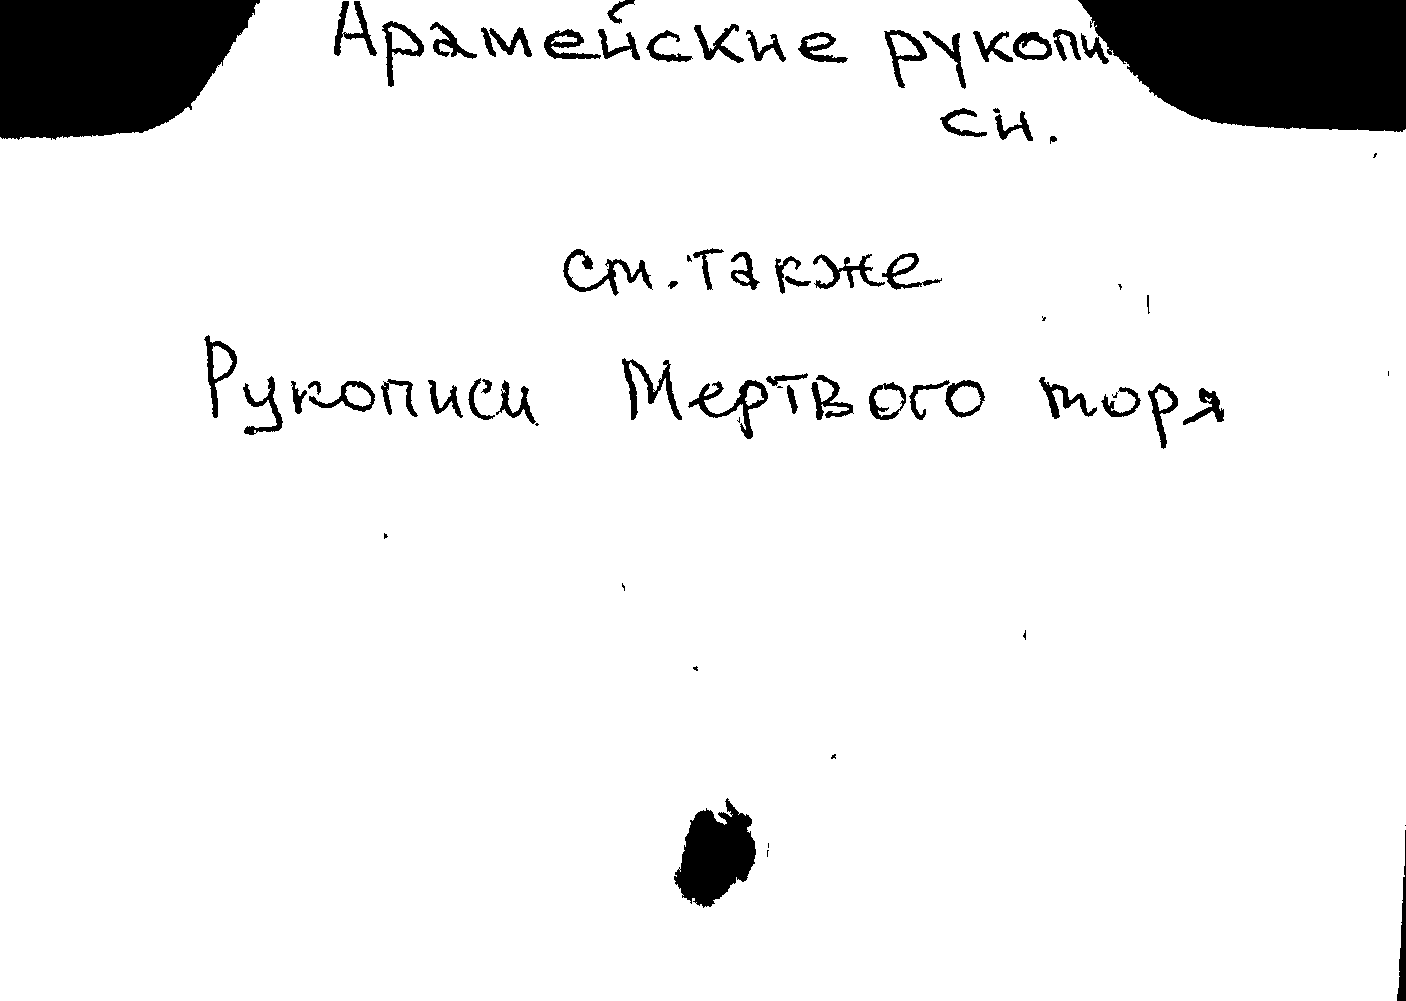 Арамейские рукопи
си.
см. также
Рукописи Мертвого моря